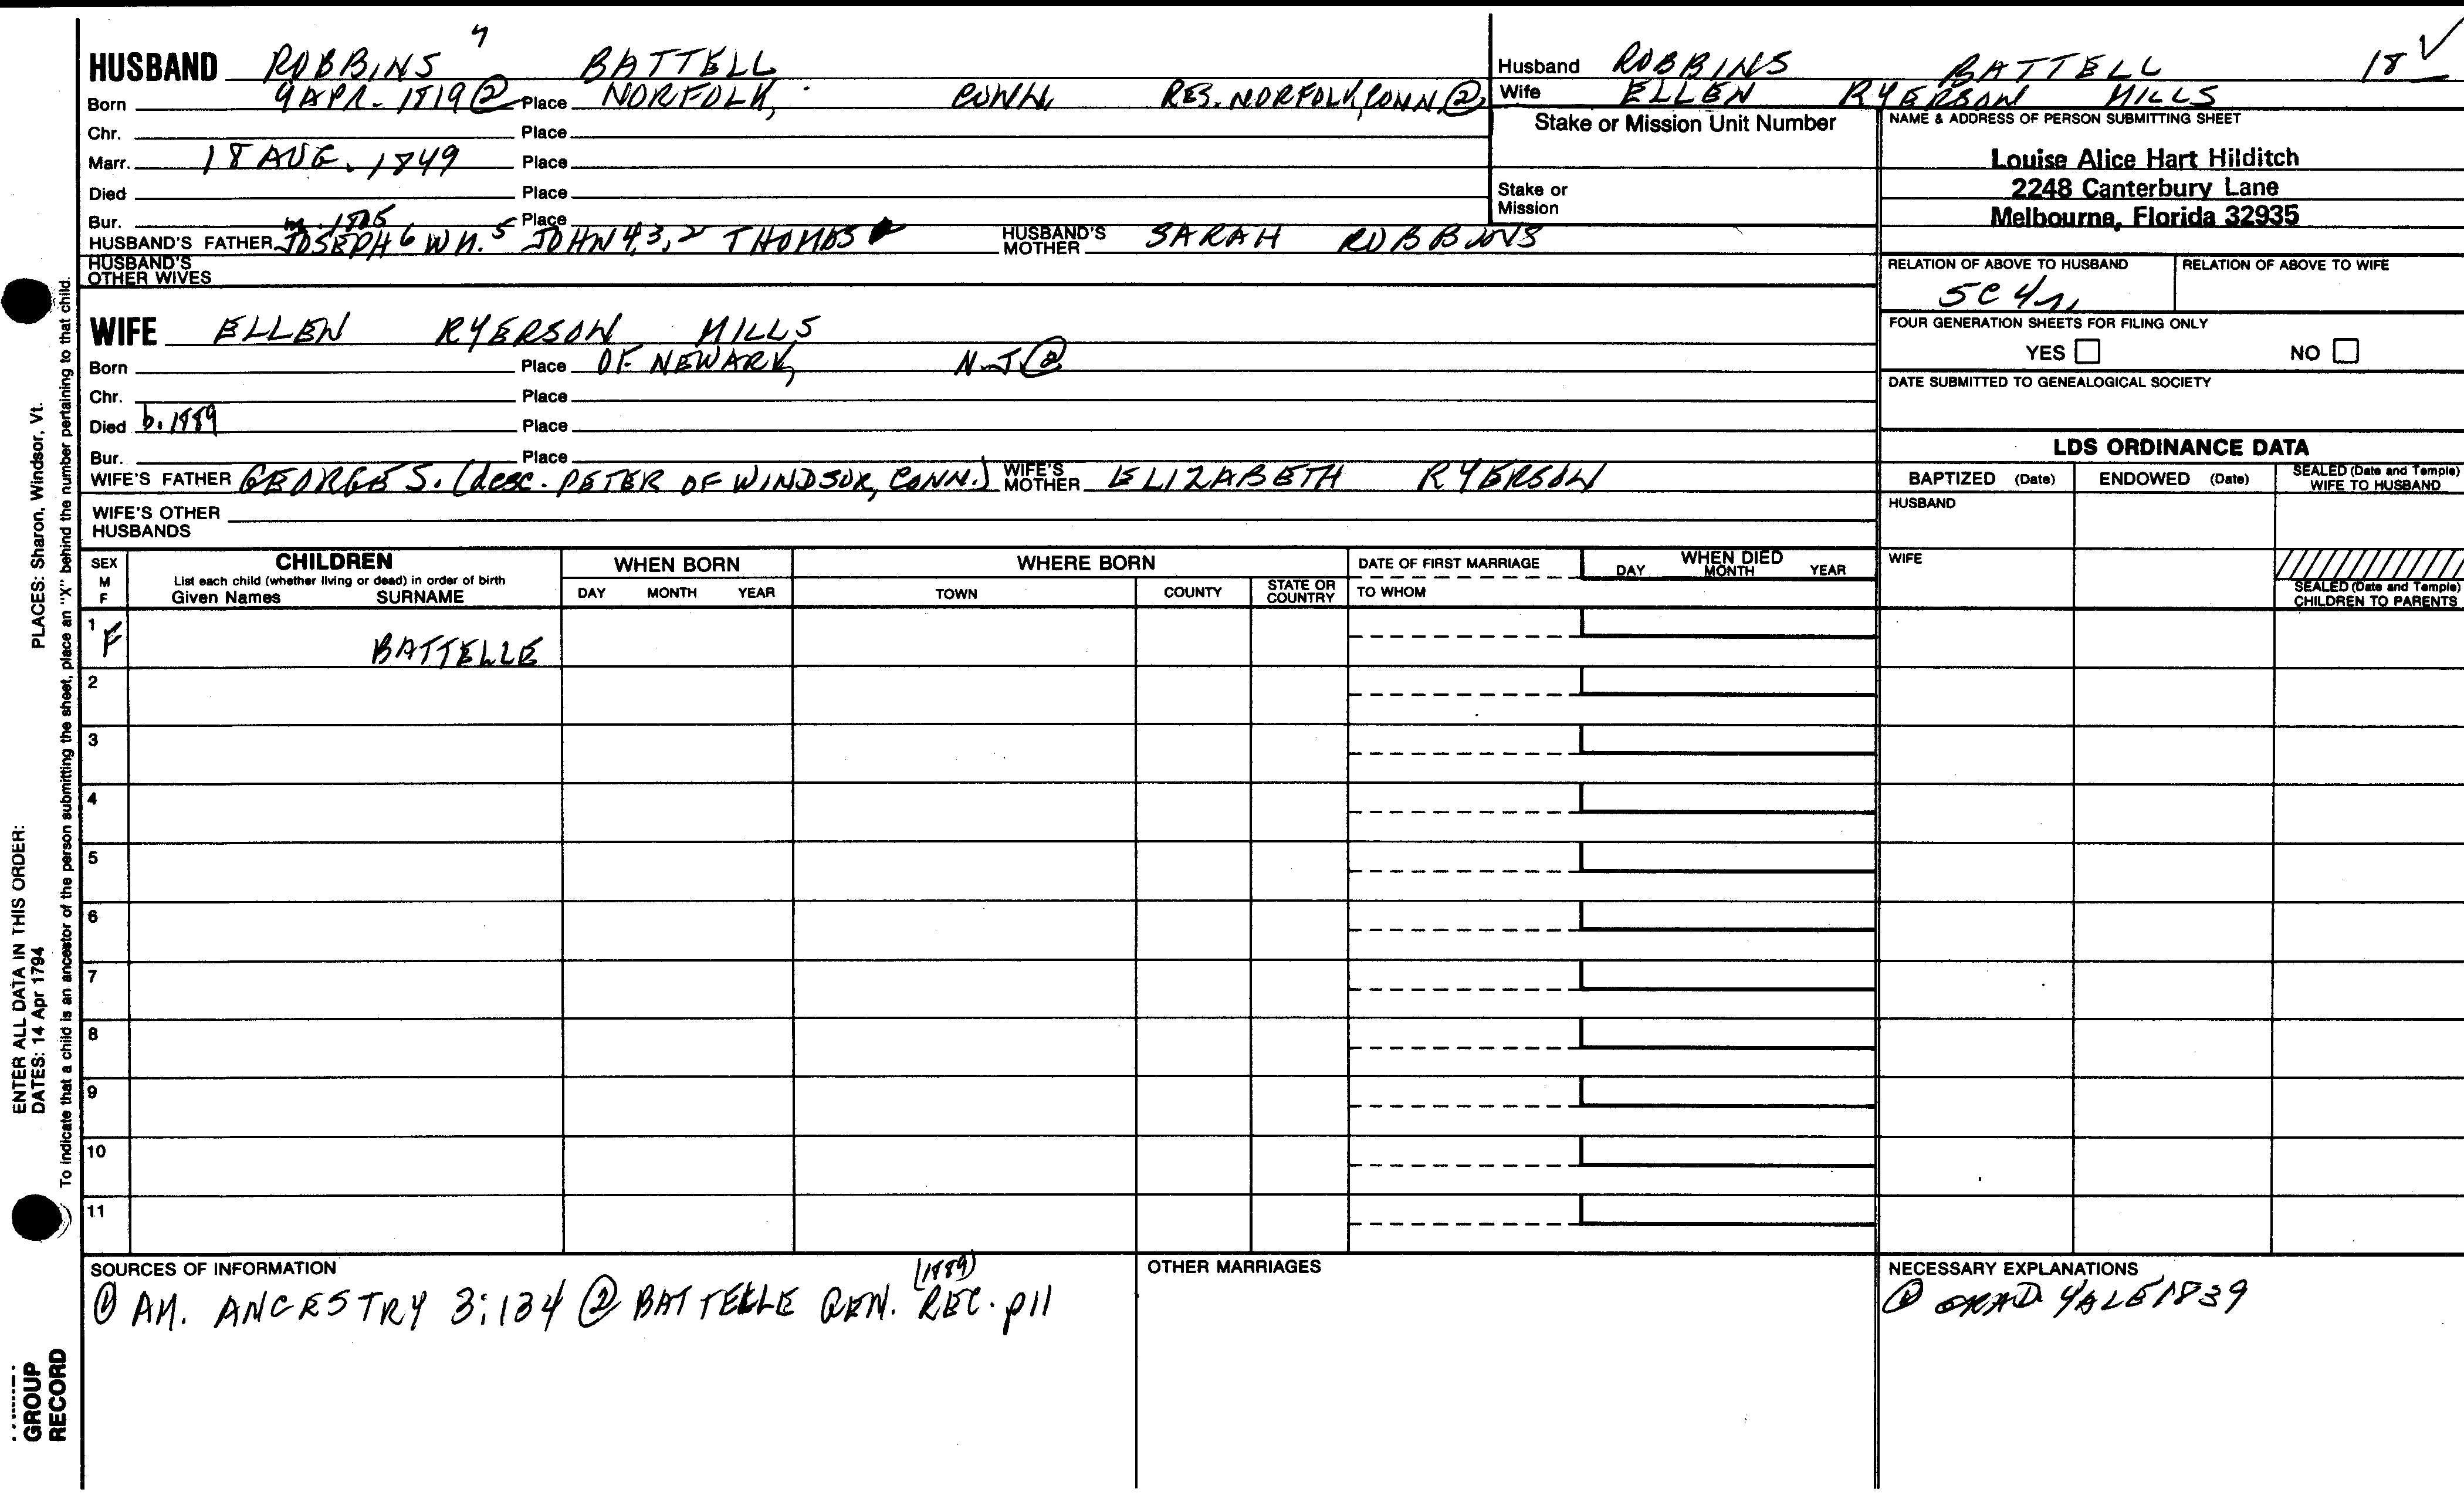 HUSBAND ROBBINS 7 BATTELL
Born 9 APR. 1819 ② Place NORFOLK, CONN RES. NORFOLK, CONN ②
Chr. Place
Marr. 18 AUG. 1849 Place
Died Place
Bur. Place
m. 1805
HUSBAND'S FATHER JOSEPH 6 WM. 5 JOHN 4,3,2 THOMAS HUSBAND'S MOTHER SARAH ROBBINS
HUSBAND'S OTHER WIVES
WIFE ELLEN RYERSON MILLS
Born Place OF NEWARK, N.J ②
Chr. Place
Died b. 1889 Place
Bur. Place
WIFE'S FATHER GEORGE S. (desc. PETER OF WINDSOR, CONN.) WIFE'S MOTHER ELIZABETH RYERSON
WIFE'S OTHER HUSBANDS
Husband ROBBINS BATTELL 18 ✓
Wife ELLEN RYERSON MILLS
Stake or Mission Unit Number
Stake or Mission
NAME & ADDRESS OF PERSON SUBMITTING SHEET
Louise Alice Hart Hilditch
2248 Canterbury Lane
Melbourne, Florida 32935
RELATION OF ABOVE TO HUSBAND RELATION OF ABOVE TO WIFE
5C 4
FOUR GENERATION SHEETS FOR FILING ONLY
YES NO
DATE SUBMITTED TO GENEALOGICAL SOCIETY
LDS ORDINANCE DATA
BAPTIZED (Date) ENDOWED (Date) SEALED (Date and Temple) WIFE TO HUSBAND
HUSBAND
WIFE
SEALED (Date and Temple) CHILDREN TO PARENTS
SEX M F
CHILDREN
List each child (whether living or dead) in order of birth
Given Names SURNAME
WHEN BORN
DAY MONTH YEAR
WHERE BORN
TOWN COUNTY STATE OR COUNTRY
DATE OF FIRST MARRIAGE
TO WHOM
WHEN DIED
DAY MONTH YEAR
1 F BATTELLE
2
3
4
5
6
7
8
9
10
11
SOURCES OF INFORMATION
① AM. ANCESTRY 3:134 ② BATTELLE GEN. REC. (1889) p11
OTHER MARRIAGES
NECESSARY EXPLANATIONS
② GRAD YALE 1839
PLACES: Sharon, Windsor, Vt.
To indicate that a child is an ancestor of the person submitting the sheet, place an "X" behind the number pertaining to that child.
ENTER ALL DATA IN THIS ORDER:
DATES: 14 Apr 1794
GROUP
RECORD